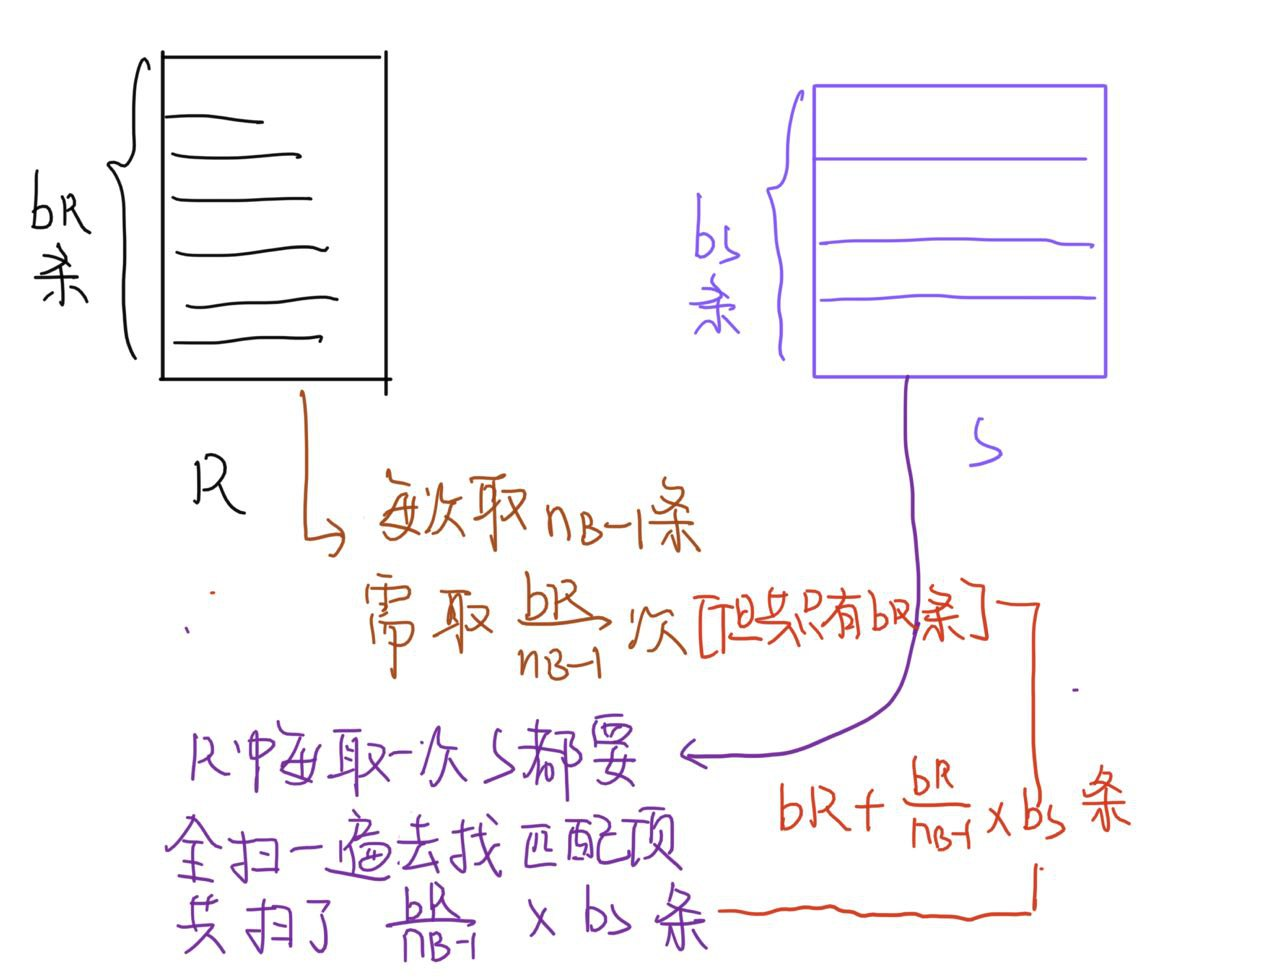 bR
条
bS
条
R
S
每次取 nB-1条
需取 bR/nB-1 次 [但共只有bR条]
R中每取一次S都要
全扫一遍去找匹配项
共扫了 bR/nB-1 × bS 条
bR + bR/nB-1 × bS 条